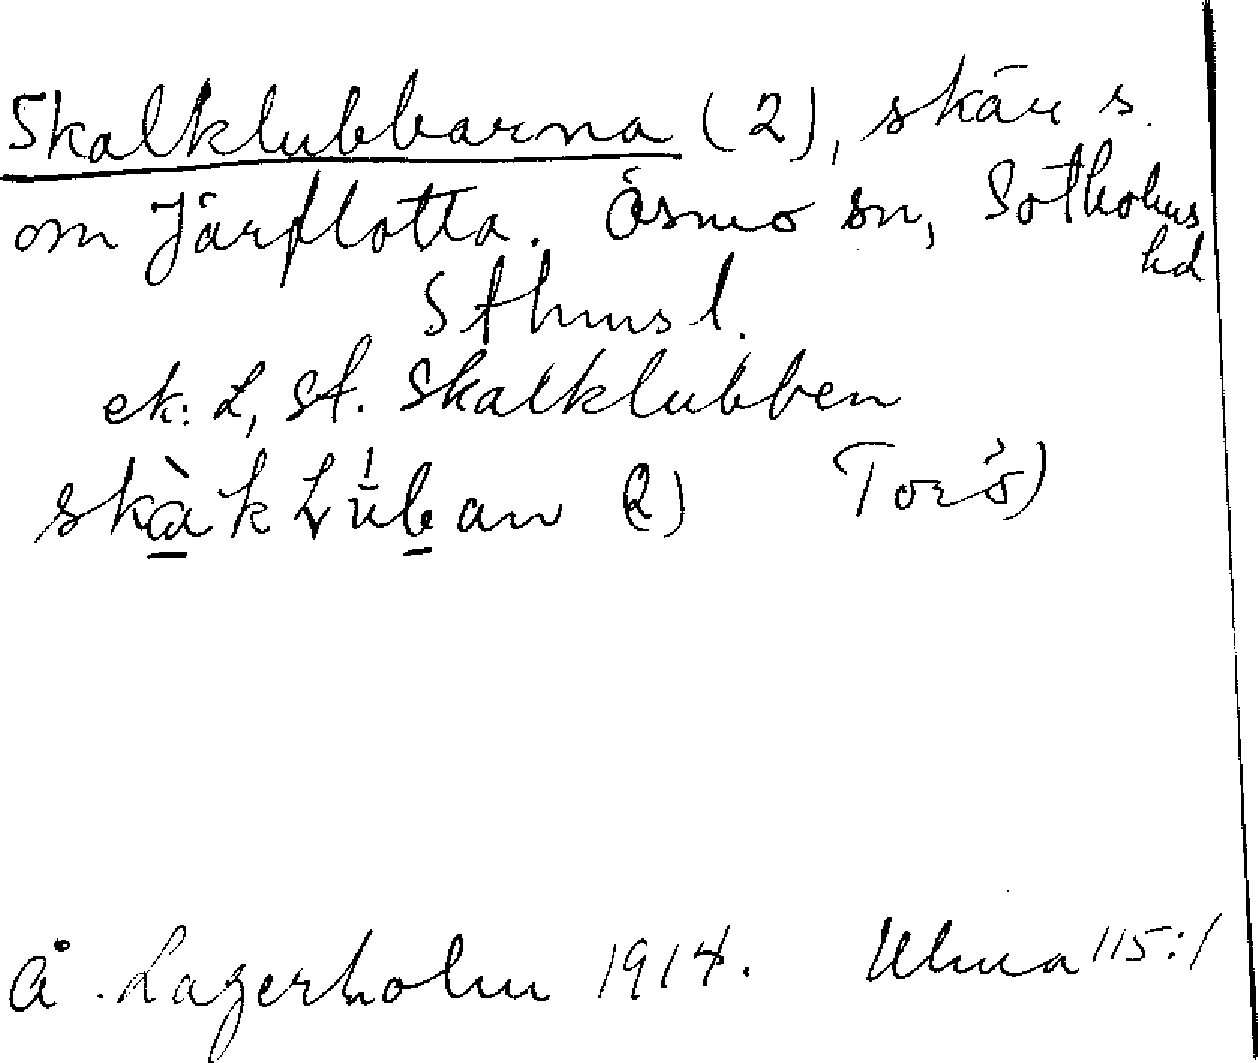 Skalklubbarna (2), skär s.
om Järflotta. Ösmo sn, Sotholms
hd
Sthms l.
ek: L, st. Skalklubben
Torö)
Å. Lagerholm 1914. Ulma 115:1